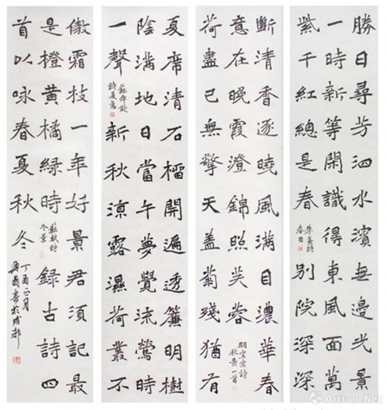 勝日尋芳泗水濱無邊光景
一時新等閒識得東風面萬
紫千紅總是春 朱熹詩 春日 別院深深
夏席清石榴開遍透簾明樹
陰滿地日當午夢覺流鶯時
一聲 蘇舜欽詩夏意 新秋涼露濕荷叢不
斷清香逐曉風滿目濃華春
意在晚霞澄錦照芙蓉 詩秋景一首
荷盡已無擎天蓋菊殘猶有
傲霜枝一年好景君須記最
是橙黃橘綠時 蘇軾詩冬景 錄古詩四
首以咏春夏秋冬 丁酉